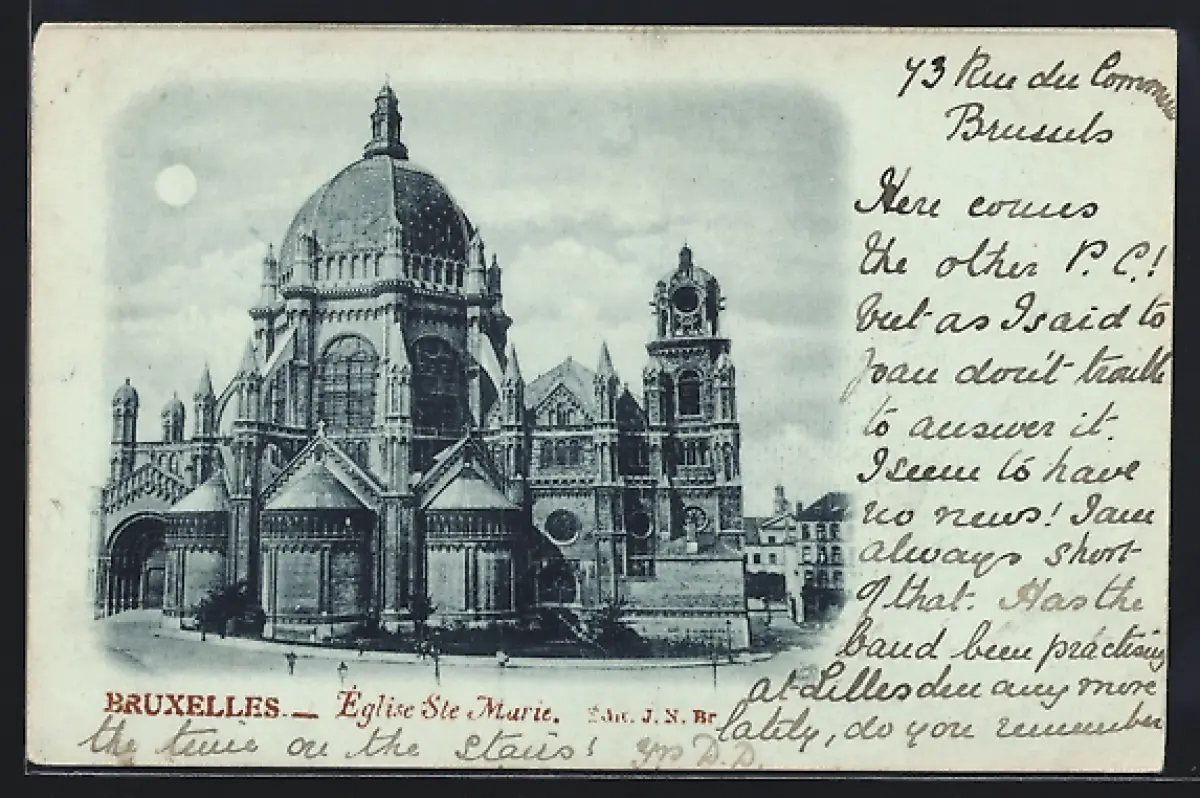 73 Rue du Commerce
Brussels
Here comes
the other P.C.!
but as I said to
Joan don't trouble
to answer it.
I seem to have
no news! I am
always short
of that. Has the
band been practising
at Lillesden any more
lately, do you remember
the time on the stairs! Yrs D.D.
BRUXELLES. — Église Ste Marie. Édit. J. N. Br